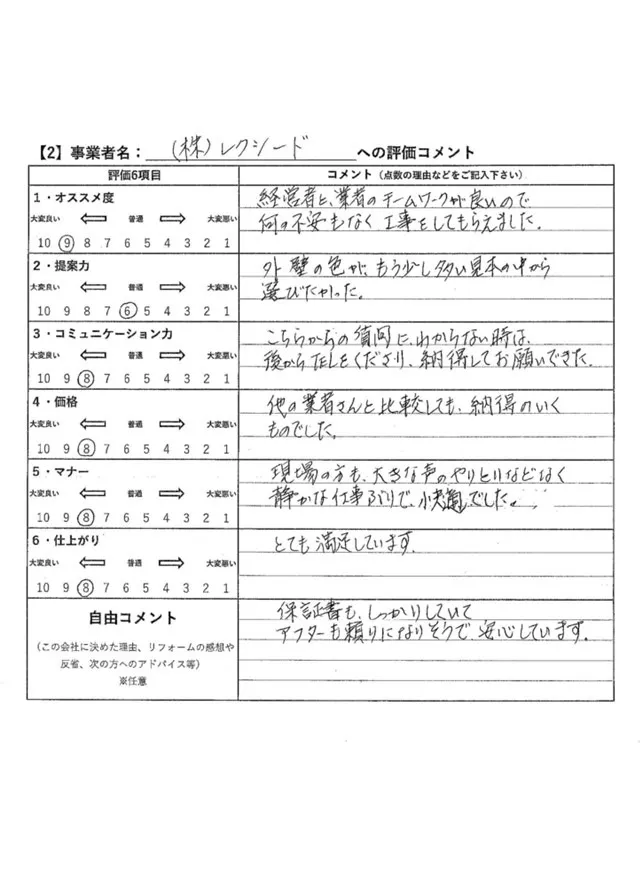 【2】事業者名： (株)レクシード への評価コメント
評価6項目
コメント（点数の理由などをご記入下さい）
1・オススメ度
大変良い 普通 大変悪い
10 9 8 7 6 5 4 3 2 1
経営者と、業者のチームワークが良いので
何の不安もなく工事をしてもらえました。
2・提案力
大変良い 普通 大変悪い
10 9 8 7 6 5 4 3 2 1
外壁の色が、もう少し多い見本の中から
選びたかった。
3・コミュニケーション力
大変良い 普通 大変悪い
10 9 8 7 6 5 4 3 2 1
こちらからの質問に、わからない時は、
後からTELをくださり、納得してお願いできた。
4・価格
大変良い 普通 大変悪い
10 9 8 7 6 5 4 3 2 1
他の業者さんと比較しても、納得のいく
ものでした。
5・マナー
大変良い 普通 大変悪い
10 9 8 7 6 5 4 3 2 1
現場の方も、大きな声のやりとりなどなく
静かな仕事ぶりで、快適でした。
6・仕上がり
大変良い 普通 大変悪い
10 9 8 7 6 5 4 3 2 1
とても満足しています。
自由コメント
（この会社に決めた理由、リフォームの感想や
反省、次の方へのアドバイス等）
※任意
保証書も、しっかりしていて
アフターも頼りになりそうで、安心しています。